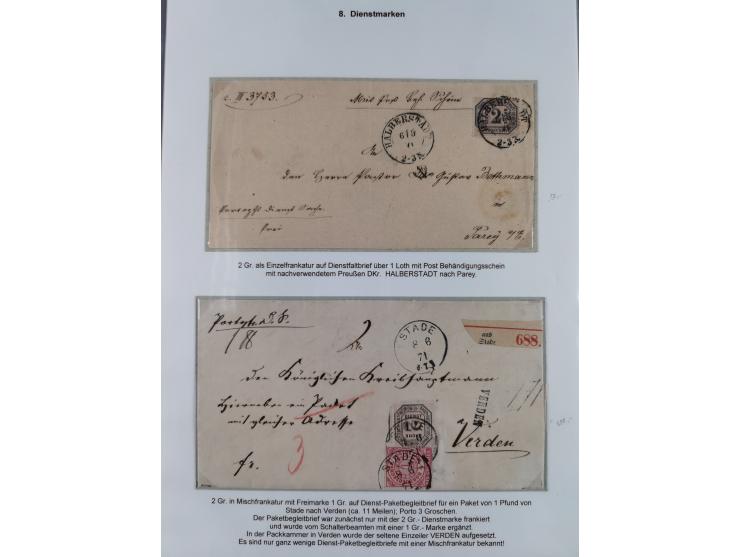 8. Dienstmarken
c. III 3753.
HALBERSTADT
6 I 9
2-3 N.
2
HALBERSTADT
2-3 N.
den Herrn Pastor Gustav Bethmann
in
Parey
frei
2 Gr. als Einzelfrankatur auf Dienstfaltbrief über 1 Loth mit Post Behändigungsschein
mit nachverwendetem Preußen DKr. HALBERSTADT nach Parey.
STADE
8 6
71
aus
Stade.
688.
2
Den Königlichen Kreishauptmann
Hierneben ein Packet
mit gleicher Adresse
VERDEN
Verden
STADE
fr.
3
2 Gr. in Mischfrankatur mit Freimarke 1 Gr. auf Dienst-Paketbegleitbrief für ein Paket von 1 Pfund von
Stade nach Verden (ca. 11 Meilen); Porto 3 Groschen.
Der Paketbegleitbrief war zunächst nur mit der 2 Gr.- Dienstmarke frankiert
und wurde vom Schalterbeamten mit einer 1 Gr.- Marke ergänzt.
In der Packkammer in Verden wurde der seltene Einzeiler VERDEN aufgesetzt.
Es sind nur ganz wenige Dienst-Paketbegleitbriefe mit einer Mischfrankatur bekannt!